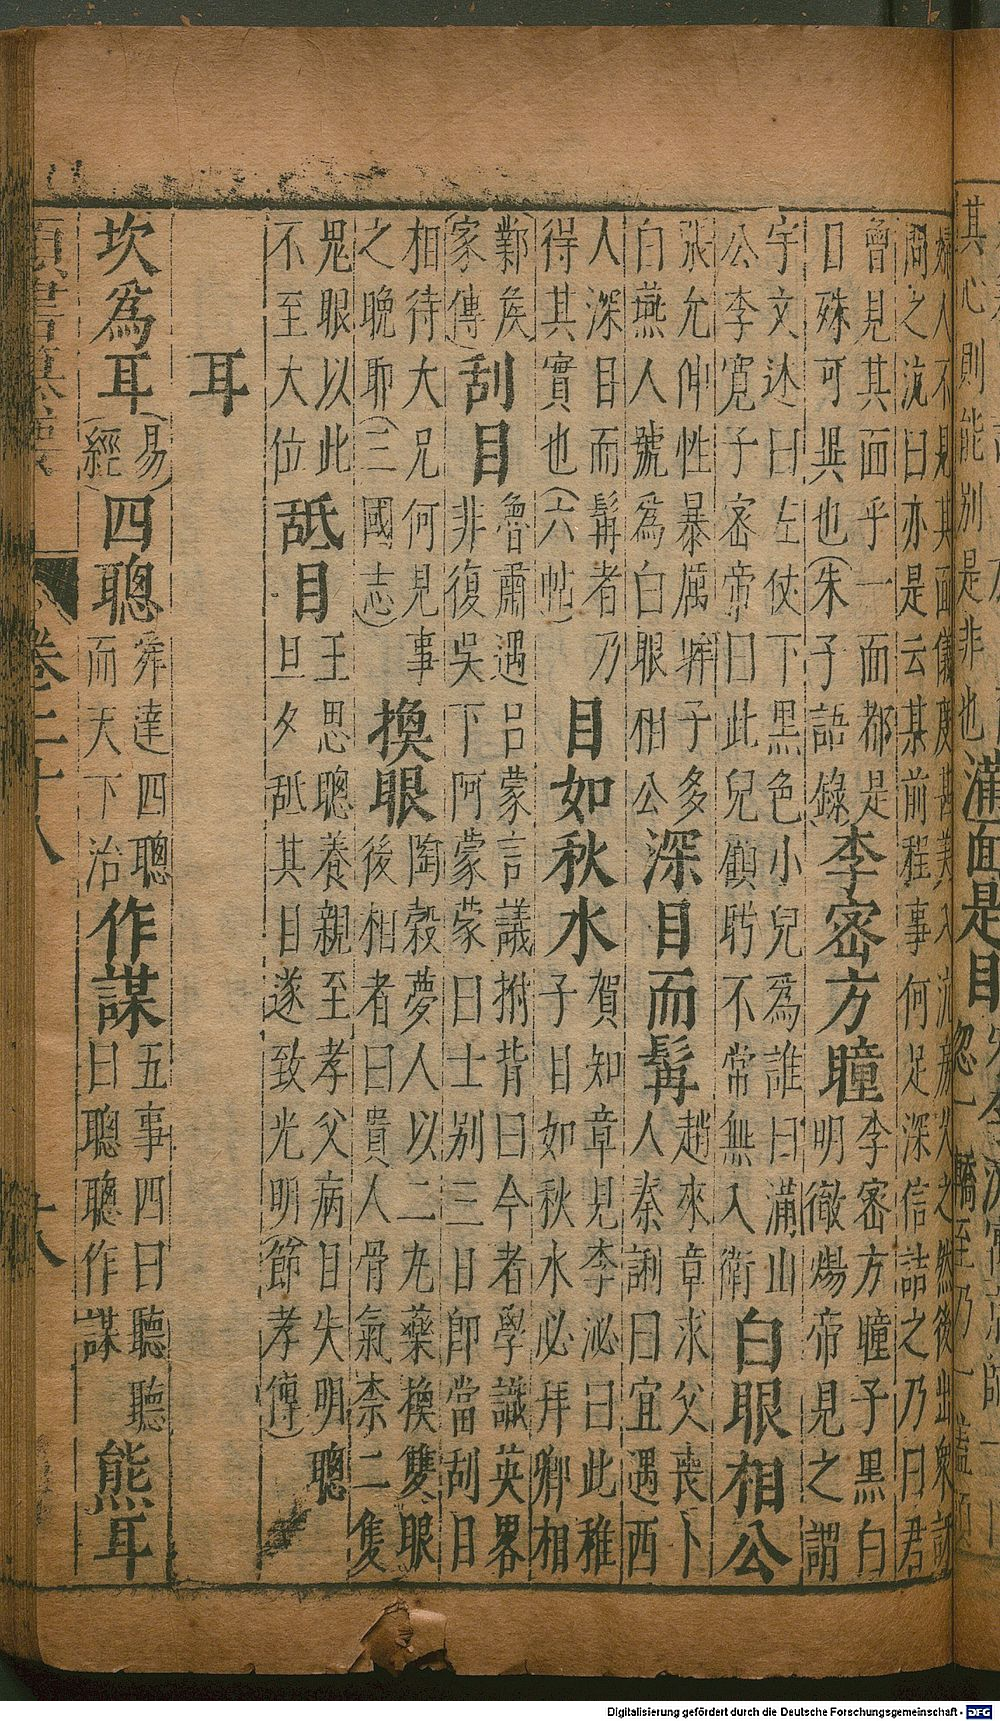 其心則能別是非也
滿面是目
婦人不見其面儀度甚美入流旁久之然後出衆訝
問之沆曰亦是云某前程事何足深信詰之乃曰君
曾見其面乎一面都是
目殊可異也(朱子語錄
李密方瞳
李密方瞳子黑白
明徹煬帝見之謂
宇文述曰左仗下黑色小兒爲誰曰蒲山
公李寬子密帝曰此兒顧眄不常無入衛
白眼相公
張允仲性暴厲眸子多
白燕人號爲白眼相公
深目而髯
趙來章求父喪下
人秦謝曰宜遇西
人深目而髯者乃
得其實也(六帖)
目如秋水
賀知章見李泌曰此稚
子目如秋水必拜卿相
(鄴矦
家傳)
刮目
魯肅遇呂蒙言議拊背曰今者學識英畧
非復吳下阿蒙蒙曰士别三日即當刮目
相待大兄何見事
之晚耶(三國志)
換眼
陶穀夢人以二丸藥換雙眼
後相者曰貴人骨氣柰二隻
鬼眼以此
不至大位
舐目
王思聰養親至孝父病目失明聰
旦夕舐其目遂致光明(節孝傳)
耳
坎爲耳
(易
經)
四聰
舜達四聰
而天下治
作謀
五事四曰聽聽
曰聰聰作謀
熊耳
卷二十八
十八
Digitalisierung gefördert durch die Deutsche Forschungsgemeinschaft - DFG